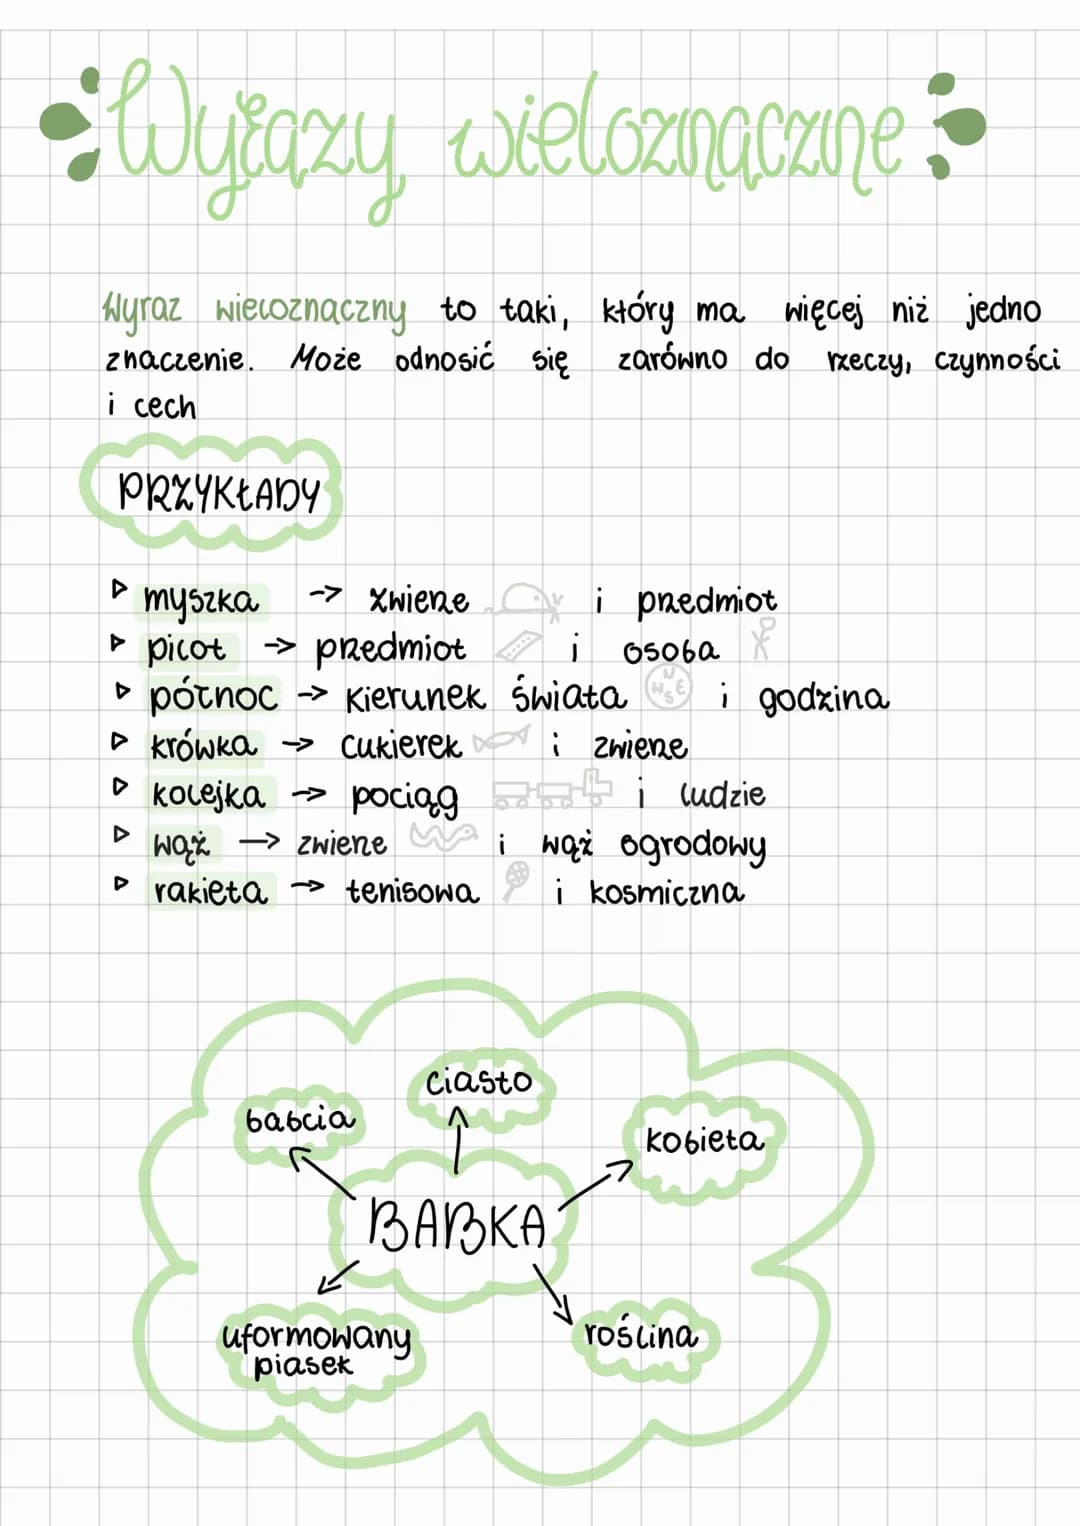 Wyrazy wieloznaczne
Wyraz wieloznaczny to taki, który ma więcej niż jedno
znaczenie. Może odnosić się zarówno do rzeczy, czynności
i cech
PRZYKŁADY
myszka -> zwierzę i przedmiot
pilot -> przedmiot i osoba
północ -> kierunek świata N W E S i godzina
krówka -> cukierek i zwierzę
kolejka -> pociąg i ludzie
wąż -> zwierzę i wąż ogrodowy
rakieta -> tenisowa i kosmiczna
ciasto
babcia
kobieta
BABKA
uformowany
piasek
roślina